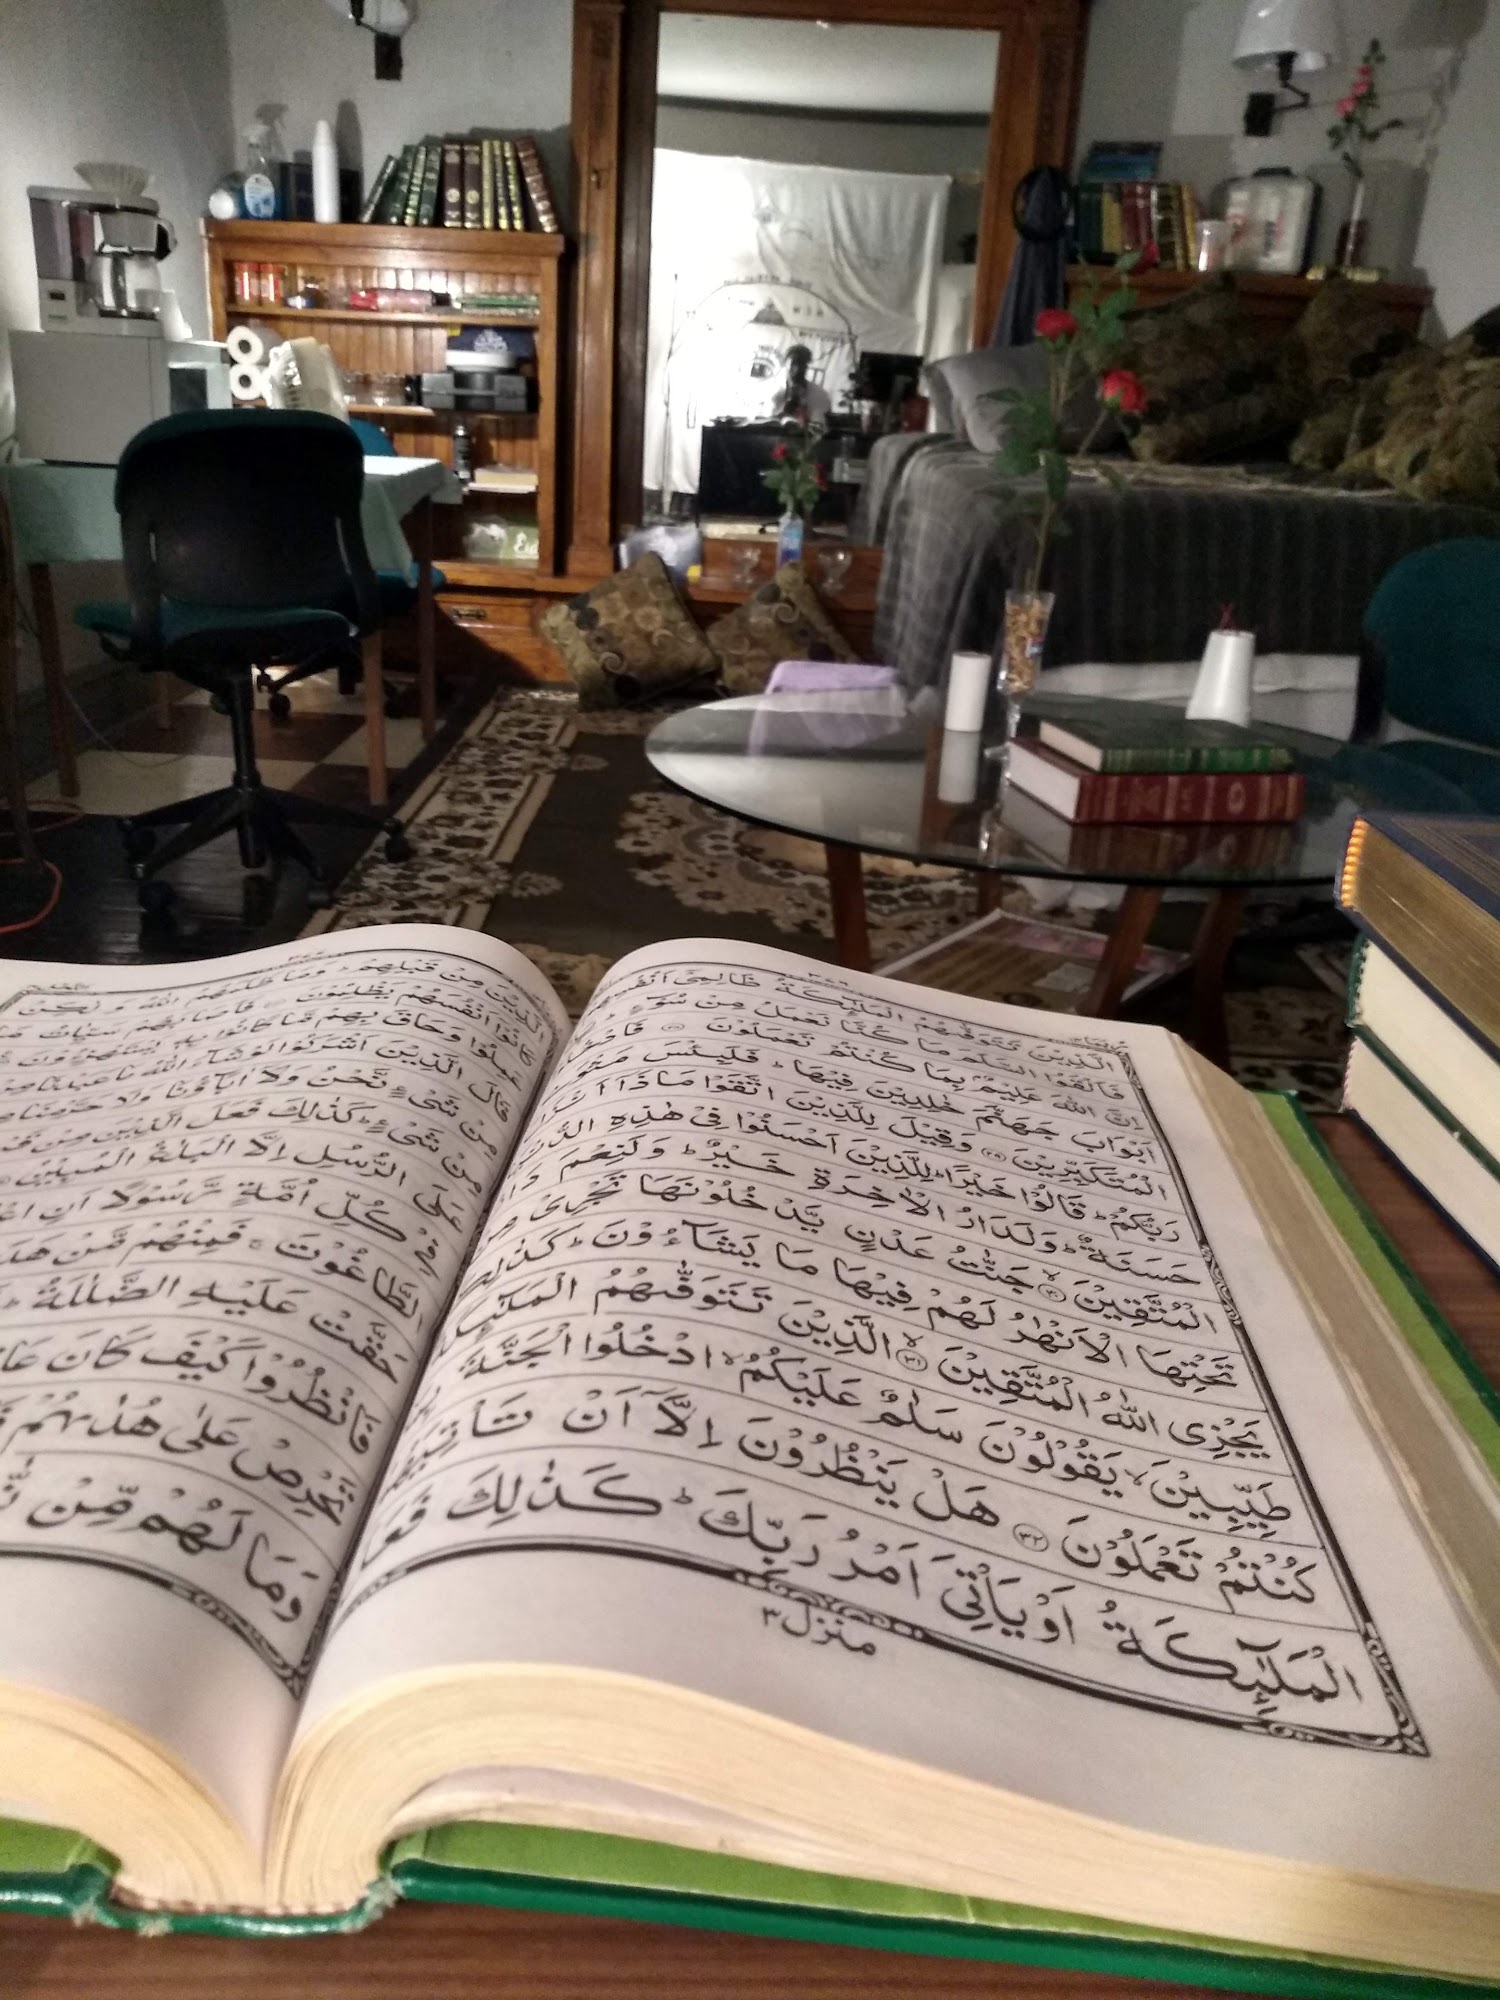 الَّذِيْنَ تَتَوَفّٰىهُمُ الْمَلٰٓئِكَةُ ظَالِمِىْٓ اَنْفُسِهِمْ
فَاَلْقَوُا السَّلَمَ مَا كُنَّا نَعْمَلُ مِنْ سُوْٓءٍ ؕ
اِنَّ اللّٰهَ عَلِيْمٌۢ بِمَا كُنْتُمْ تَعْمَلُوْنَ ﴿۲۸﴾ فَادْخُلُوْٓا
اَبْوَابَ جَهَنَّمَ خٰلِدِيْنَ فِيْهَا ؕ فَلَبِئْسَ مَثْوَى
الْمُتَكَبِّرِيْنَ ﴿۲۹﴾ وَقِيْلَ لِلَّذِيْنَ اتَّقَوْا مَاذَاۤ اَنْزَلَ
رَبُّكُمْ ؕ قَالُوْا خَيْرًا ؕ لِلَّذِيْنَ اَحْسَنُوْا فِىْ هٰذِهِ الدُّنْيَا
حَسَنَةٌ ؕ وَلَدَارُ الْاٰخِرَةِ خَيْرٌ ؕ وَلَنِعْمَ دَارُ
الْمُتَّقِيْنَ ﴿۳۰﴾ جَنّٰتُ عَدْنٍ يَّدْخُلُوْنَهَا تَجْرِىْ مِنْ
تَحْتِهَا الْاَنْهٰرُ لَهُمْ فِيْهَا مَا يَشَآءُوْنَ ؕ كَذٰلِكَ
يَجْزِى اللّٰهُ الْمُتَّقِيْنَ ﴿۳۱﴾ الَّذِيْنَ تَتَوَفّٰىهُمُ الْمَلٰٓئِكَةُ
طَيِّبِيْنَ ۙ يَقُوْلُوْنَ سَلٰمٌ عَلَيْكُمُ ۙ ادْخُلُوا الْجَنَّةَ
كُنْتُمْ تَعْمَلُوْنَ ﴿۳۲﴾ هَلْ يَنْظُرُوْنَ اِلَّاۤ اَنْ تَاْتِيَهُمُ
الْمَلٰٓئِكَةُ اَوْ يَاْتِىَ اَمْرُ رَبِّكَ ؕ كَذٰلِكَ فَعَلَ
منزل ۳
الَّذِيْنَ مِنْ قَبْلِهِمْ ؕ وَمَا ظَلَمَهُمُ اللّٰهُ وَلٰكِنْ
كَانُوْۤا اَنْفُسَهُمْ يَظْلِمُوْنَ ﴿۳۳﴾ فَاَصَابَهُمْ سَيِّاٰتُ مَا
عَمِلُوْا وَحَاقَ بِهِمْ مَّا كَانُوْا بِهٖ يَسْتَهْزِءُوْنَ
وَقَالَ الَّذِيْنَ اَشْرَكُوْا لَوْ شَآءَ اللّٰهُ مَا عَبَدْنَا مِنْ
مِنْ شَىْءٍ نَّحْنُ وَلَاۤ اٰبَآؤُنَا وَلَا حَرَّمْنَا
مِنْ شَىْءٍ ؕ كَذٰلِكَ فَعَلَ الَّذِيْنَ مِنْ
عَلَى الرُّسُلِ اِلَّا الْبَلٰغُ الْمُبِيْنُ
فِىْ كُلِّ اُمَّةٍ رَّسُوْلًا اَنِ
الطَّاغُوْتَ ۚ فَمِنْهُمْ مَّنْ هَدَى
حَقَّتْ عَلَيْهِ الضَّلٰلَةُ ؕ
فَانْظُرُوْا كَيْفَ كَانَ
تَحْرِصْ عَلٰى هُدٰىهُمْ
وَمَا لَهُمْ مِّنْ